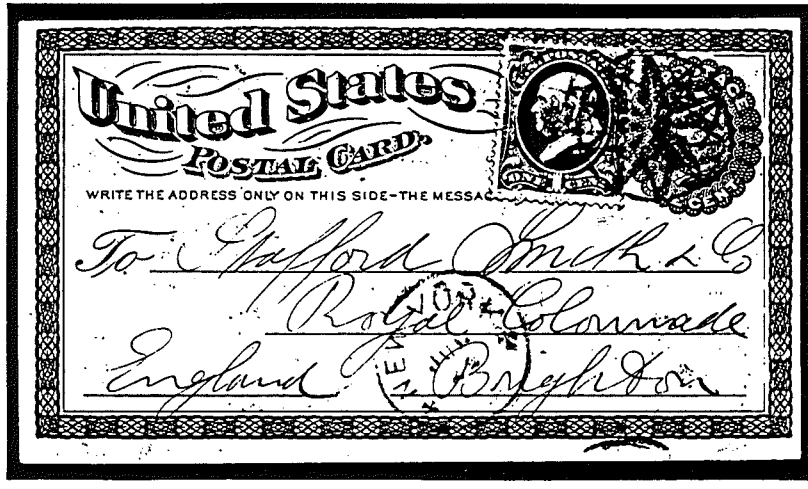 United States
POSTAL CARD.
WRITE THE ADDRESS ONLY ON THIS SIDE-THE MESSAG
POSTAGE
ONE CENT
CENT
To Stafford Smith & Co
Royal Colonnade
England Brighton
NEW YORK
JUL